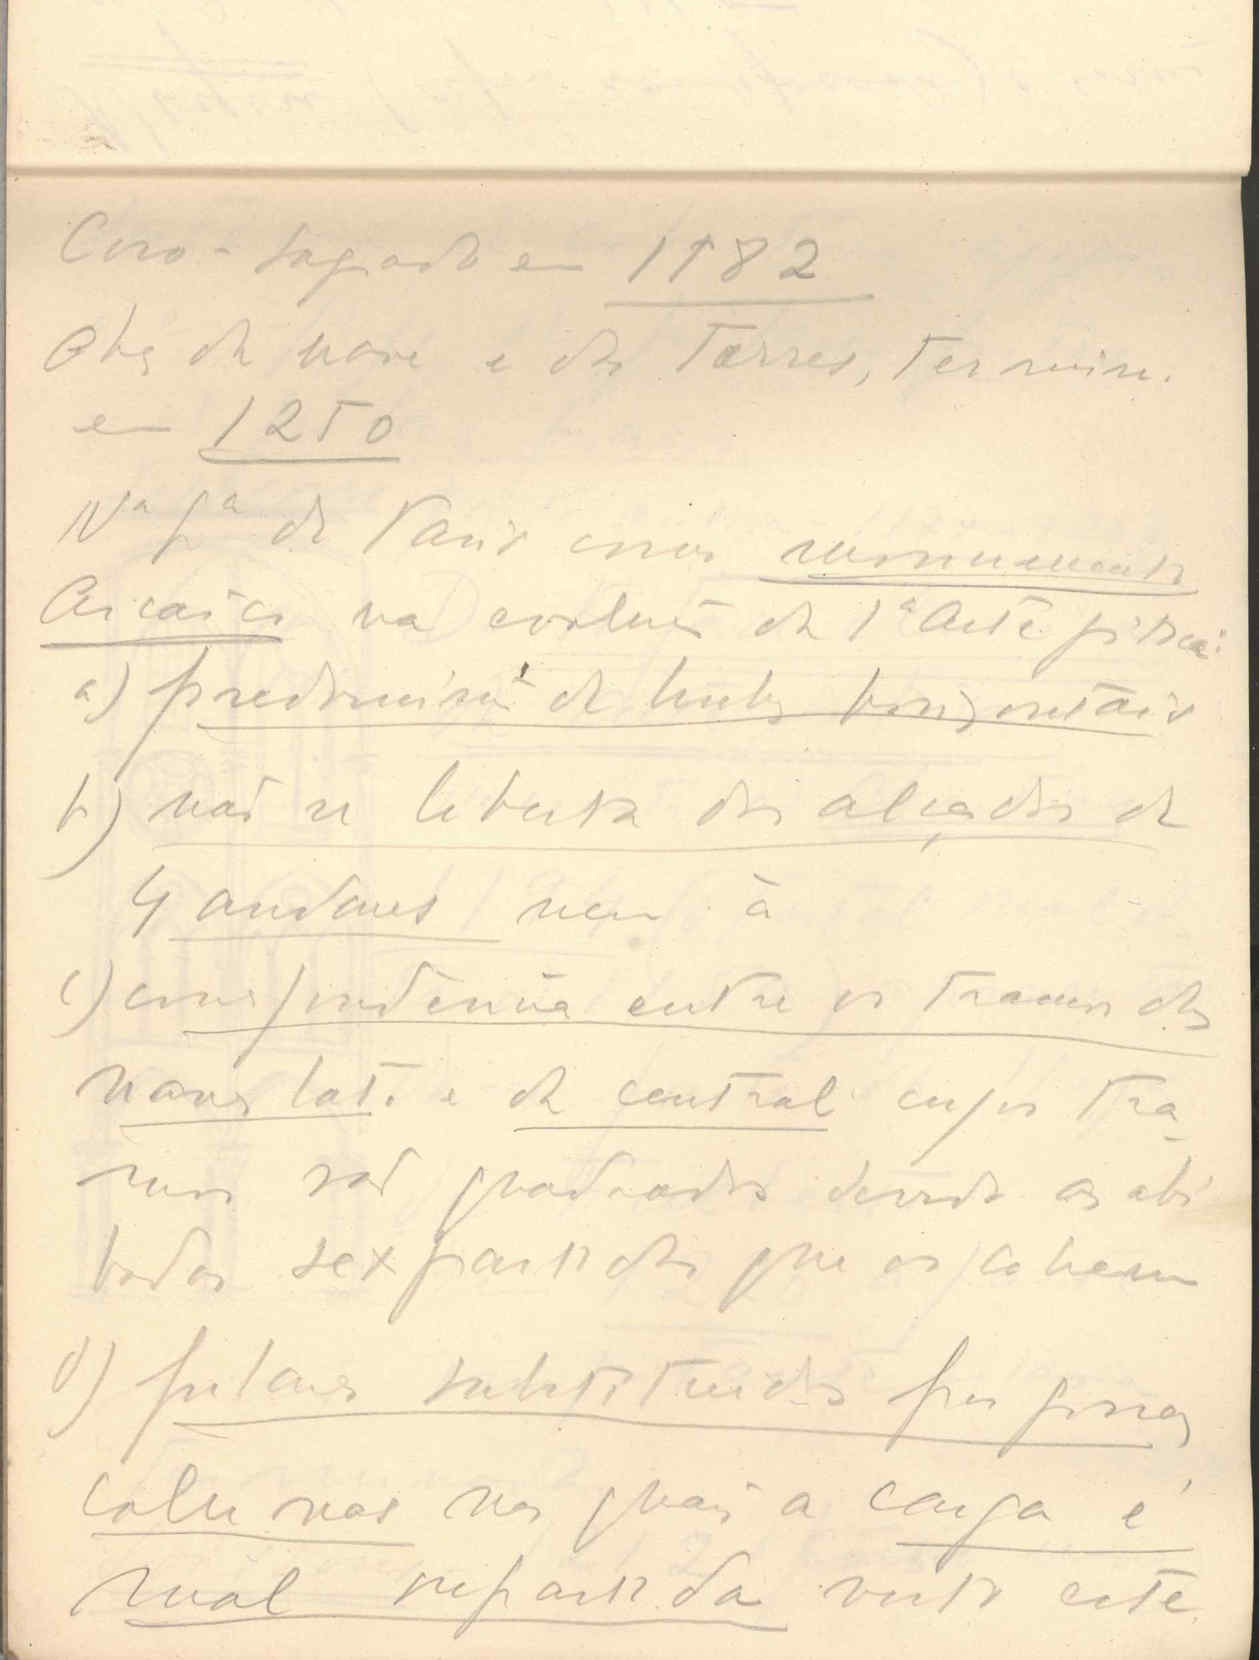 Coro - sagrado em 1182
Obras da nave e das Torres, termin.
em 1250
Nª Sª de Paris como monumento
Arcaico na evolução da 1ª Arte gótica:
a) predominio de linhas horizontais
b) não se liberta dos alçados de
4 andares nem à
c) correspondência entre os tramos das
naves lat. e da central cujos tra
mos são quadrados devido às abó
badas sexpartidas que os cobrem
d) pilares substituidos por grossas
colunas nas quais a carga é
mal repartida visto este